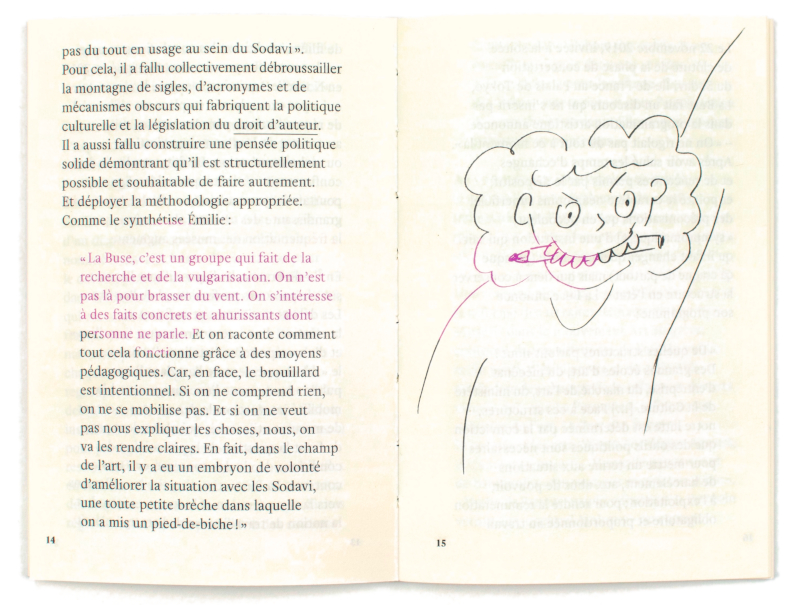 pas du tout en usage au sein du Sodavi ».
Pour cela, il a fallu collectivement débroussailler
la montagne de sigles, d'acronymes et de
mécanismes obscurs qui fabriquent la politique
culturelle et la législation du droit d'auteur.
Il a aussi fallu construire une pensée politique
solide démontrant qu'il est structurellement
possible et souhaitable de faire autrement.
Et déployer la méthodologie appropriée.
Comme le synthétise Émilie :
« La Buse, c'est un groupe qui fait de la
recherche et de la vulgarisation. On n'est
pas là pour brasser du vent. On s'intéresse
à des faits concrets et ahurissants dont
personne ne parle. Et on raconte comment
tout cela fonctionne grâce à des moyens
pédagogiques. Car, en face, le brouillard
est intentionnel. Si on ne comprend rien,
on ne se mobilise pas. Et si on ne veut
pas nous expliquer les choses, nous, on
va les rendre claires. En fait, dans le champ
de l'art, il y a eu un embryon de volonté
d'améliorer la situation avec les Sodavi,
une toute petite brèche dans laquelle
on a mis un pied-de-biche ! »
14
15